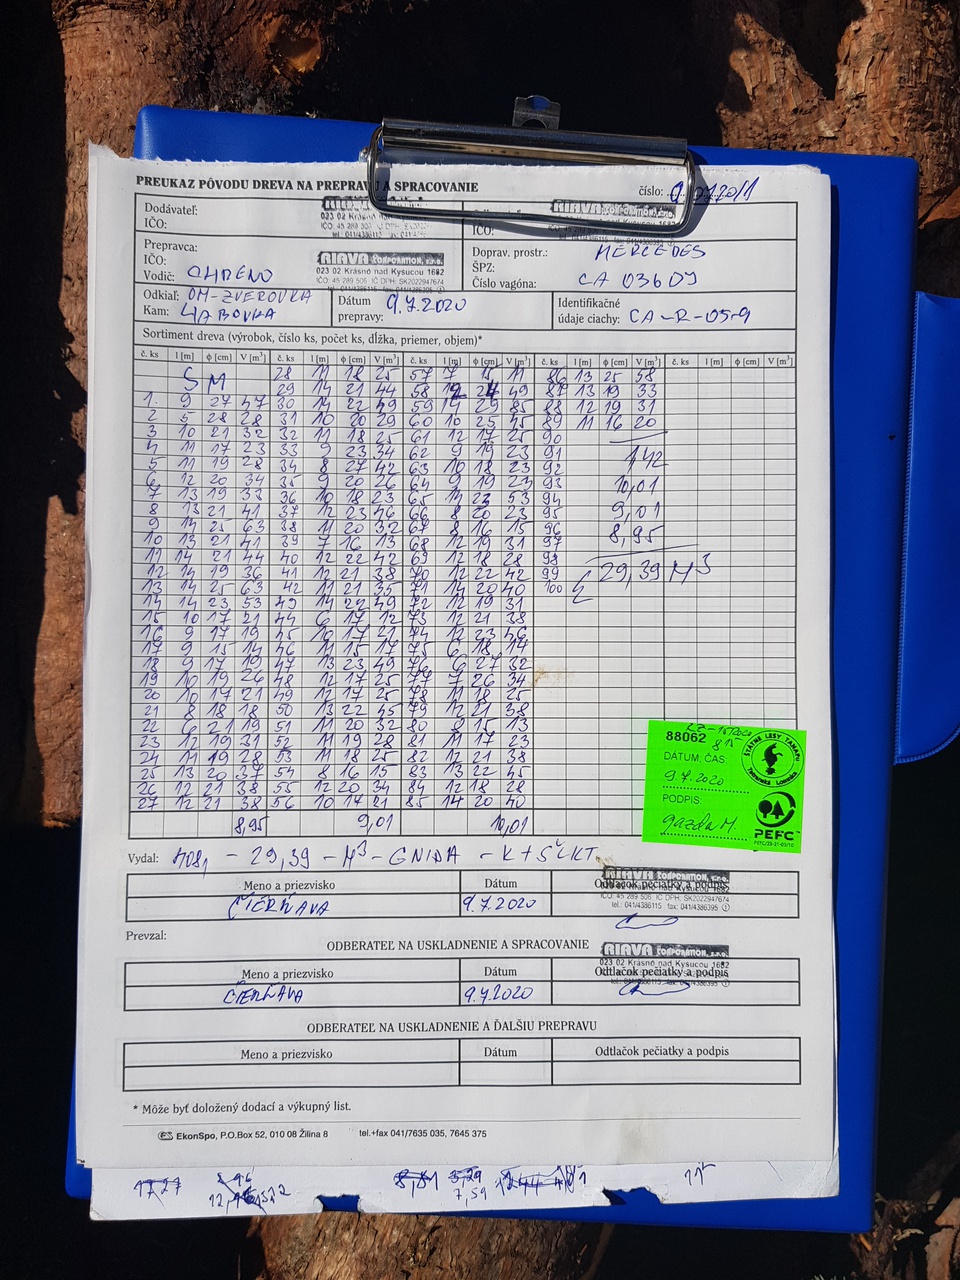 PREUKAZ PÔVODU DREVA NA PREPRAVU A SPRACOVANIE
číslo:
Dodávateľ:
IČO:
RIAVA CORPORATION, s.r.o.
IČO:
Prepravca:
IČO:
Vodič:
RIAVA CORPORATION, s.r.o.
023 02 Krásno nad Kysucou 1682
IČO: 45 289 506 IČ DPH: SK2022947674
tel.: 041/4386115
Doprav. prostr.: MERCEDES
ŠPZ:
Číslo vagóna: CA 036DJ
Odkiaľ: OM-ZVEROVKA
Kam: HABOVKA
Dátum prepravy: 9.7.2020
Identifikačné
údaje ciachy: CA-R-059
Sortiment dreva (výrobok, číslo ks, počet ks, dĺžka, priemer, objem)*
č. ks l [m] ϕ [cm] V [m³] č. ks l [m] ϕ [cm] V [m³] č. ks l [m] ϕ [cm] V [m³] č. ks l [m] ϕ [cm] V [m³] č. ks l [m] ϕ [cm] V [m³]
SM 28 11 18 25 57 7 15 11 86 13 25 58
29 14 21 44 58 49 87 13 19 33
1. 9 27 47 30 14 22 49 59 14 29 85 88 12 19 31
2 5 28 28 31 10 20 29 60 10 25 45 89 11 16 20
3 10 21 32 32 11 18 25 61 12 17 25 90
4 11 17 23 33 9 23 34 62 9 19 23 91 1,42
5 11 19 28 34 8 27 42 63 10 18 23 92
6 12 20 34 35 9 20 26 64 9 19 23 93 10,01
7 13 19 33 36 10 18 23 65 14 23 53 94
8 13 21 41 37 12 23 46 66 8 20 23 95 9,01
9 14 25 63 38 11 20 32 67 8 16 15 96 8,95
10 13 21 41 39 7 16 13 68 12 19 31 97
11 14 21 44 40 12 22 42 69 12 18 28 98
12 14 19 36 41 12 21 38 70 12 22 42 99 29,39 M3
13 14 25 63 42 11 21 35 71 14 20 40 100
14 14 23 53 43 14 22 49 72 12 19 31
15 10 17 21 44 6 17 12 73 12 21 38
16 9 17 19 45 10 17 21 74 12 23 46
17 9 15 14 46 11 15 17 75 6 18 14
18 9 17 19 47 13 23 49 76 6 27 32
19 10 19 26 48 12 17 25 77 7 26 34
20 10 17 21 49 12 17 25 78 11 18 25
21 8 18 18 50 13 22 45 79 12 21 38
22 6 21 19 51 11 20 32 80 9 15 13
23 12 19 31 52 11 19 28 81 11 17 23
24 11 19 28 53 11 18 25 82 12 21 38
25 13 20 37 54 8 16 15 83 13 22 45
26 12 21 38 55 12 20 34 84 12 18 28
27 12 21 38 56 10 17 21 85 14 20 40
8,95 9,01 10,01
88062
DÁTUM, ČAS:
9.7.2020
PODPIS:
gazda M.
ŠTÁTNE LESY TANAPU
Tatranská Lomnica
PEFC
Vydal: - 29,39 - M3 - GNIDA - K+SČLKT
Meno a priezvisko Dátum Odtlačok pečiatky a podpis
ČIERŇAVA 9.7.2020
RIAVA CORPORATION, s.r.o.
023 02 Krásno nad Kysucou 1682
IČO: 45 289 506 IČ DPH: SK2022947674
tel.: 041/4386115 fax: 041/4386395
Prevzal:
ODBERATEĽ NA USKLADNENIE A SPRACOVANIE
Meno a priezvisko Dátum Odtlačok pečiatky a podpis
ČIERŇAVA 9.7.2020
RIAVA CORPORATION, s.r.o.
023 02 Krásno nad Kysucou 1682
ODBERATEĽ NA USKLADNENIE A ĎALŠIU PREPRAVU
Meno a priezvisko Dátum Odtlačok pečiatky a podpis
* Môže byť doložený dodací a výkupný list.
EkonSpo, P.O.Box 52, 010 08 Žilina 8 tel.+fax 041/7635 035, 7645 375
7,59